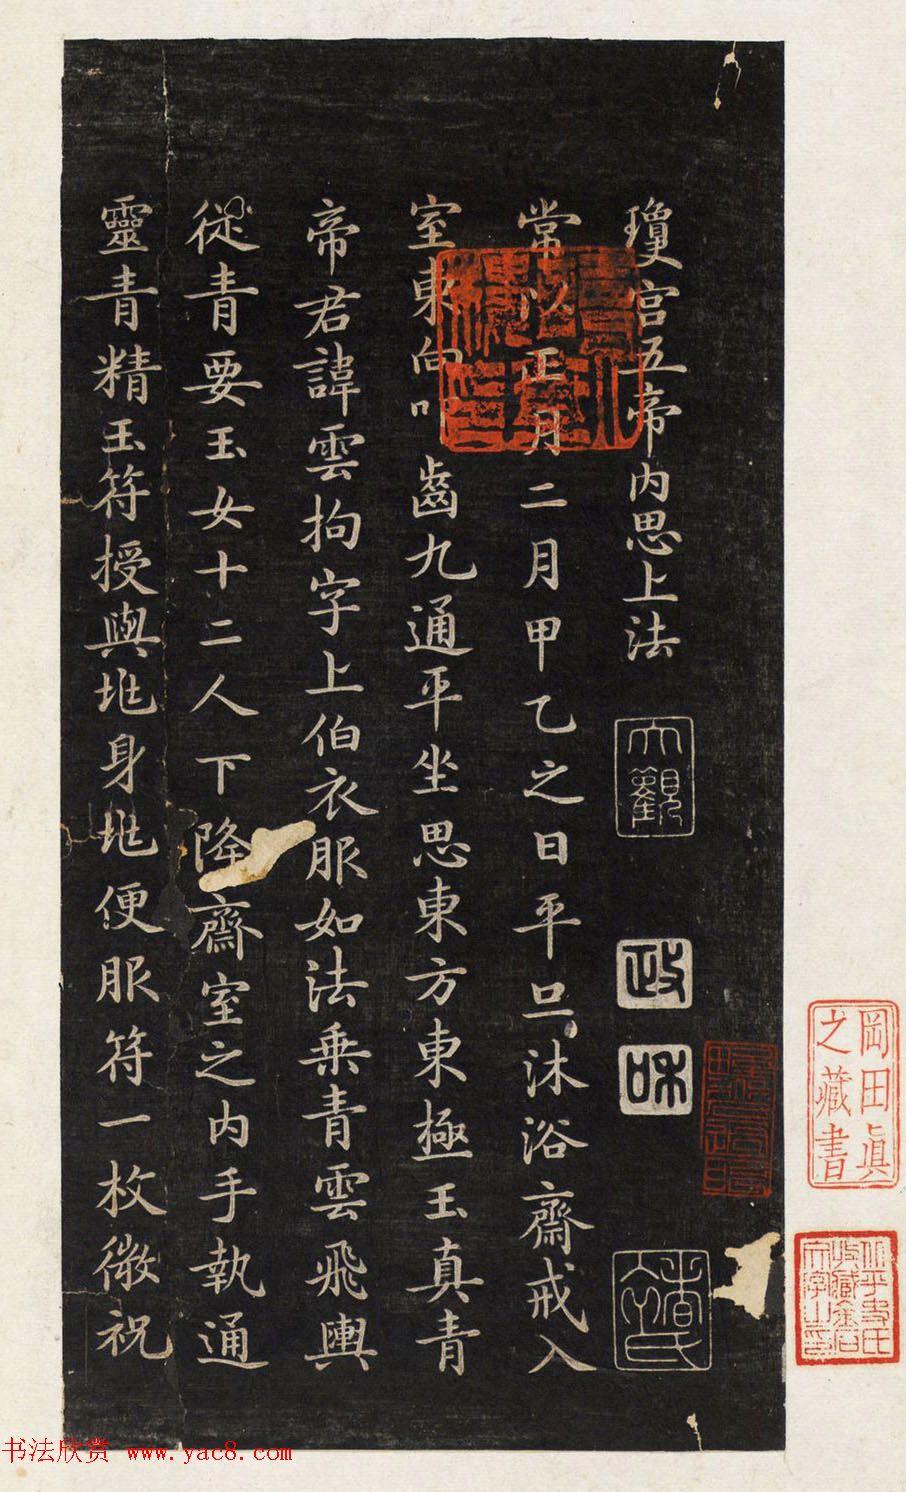 瓊宮五帝內思上法
常以正月二月甲乙之日平旦沐浴齋戒入
室東向叩齒九通平坐思東方東極玉真青
帝君諱雲拘字上伯衣服如法乘青雲飛輿
從青要玉女十二人下降齋室之內手執通
靈青精玉符授與兆身兆便服符一枚微祝
大觀
政和
岡田眞
之藏書
书法欣赏 www.yac8.com